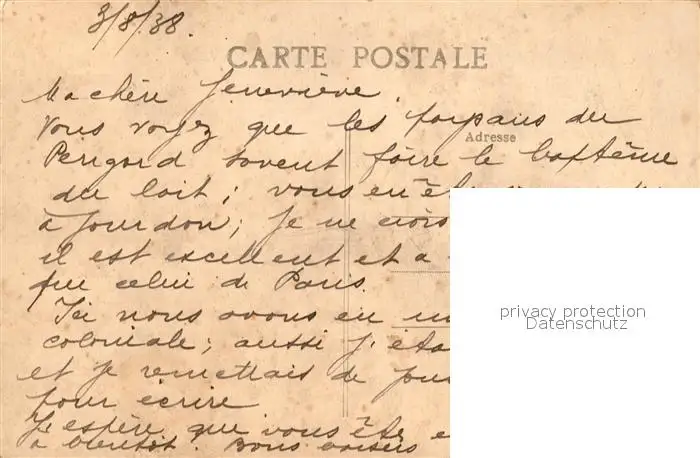 3/8/38.
CARTE POSTALE
Ma chère Geneviève,
Vous voyez que les paysans du
Adresse
Perigord savent faire le baptême
du lait ; vous
à Jourdon ; je ne crois
il est excellent et a
que celui de Paris.
Ici nous avons eu un
coloniale ; aussi j'éta
et je remettais de jou
pour écrire
J'espère que vous êtes e
a bientôt. Bons baisers
privacy protection
Datenschutz